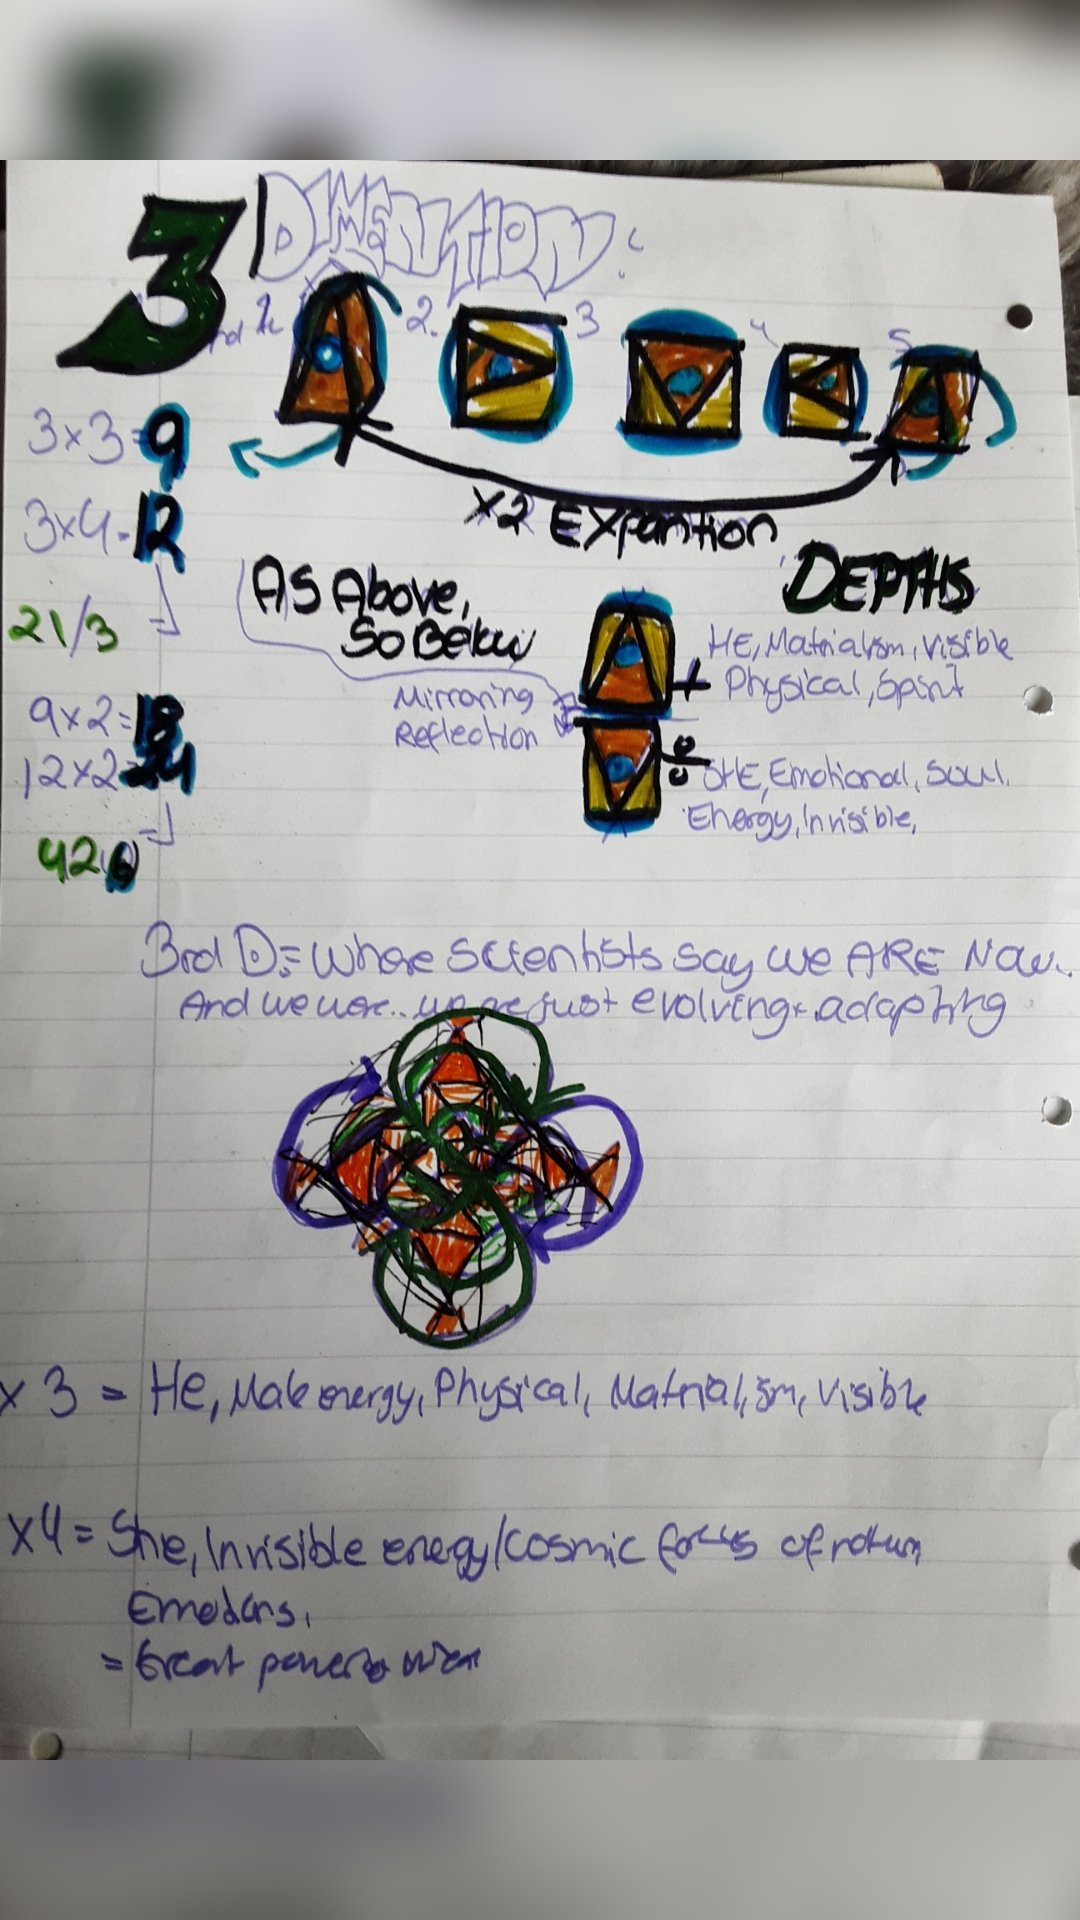 3rd DIMENTION:
1. 2. 3 4 5
3x3=9
3x4=12
21/3
9x2=18
12x2=24
42
x2 EXPANTION
AS Above,
So Below
Mirroring
Reflection
DEPTHS
HE, Matrialism, visible
+ Physical, Spirit
÷ SHE, Emotional, Soul.
Energy, Invisible,
3rd D:= Where Scientists say we ARE Now..
And we were.. we are just evolving + adapting
x 3 = He, Male energy, Physical, Matrialism, Visible
x4 = She, Invisible energy/cosmic forces of return
Emotions,
= Great power